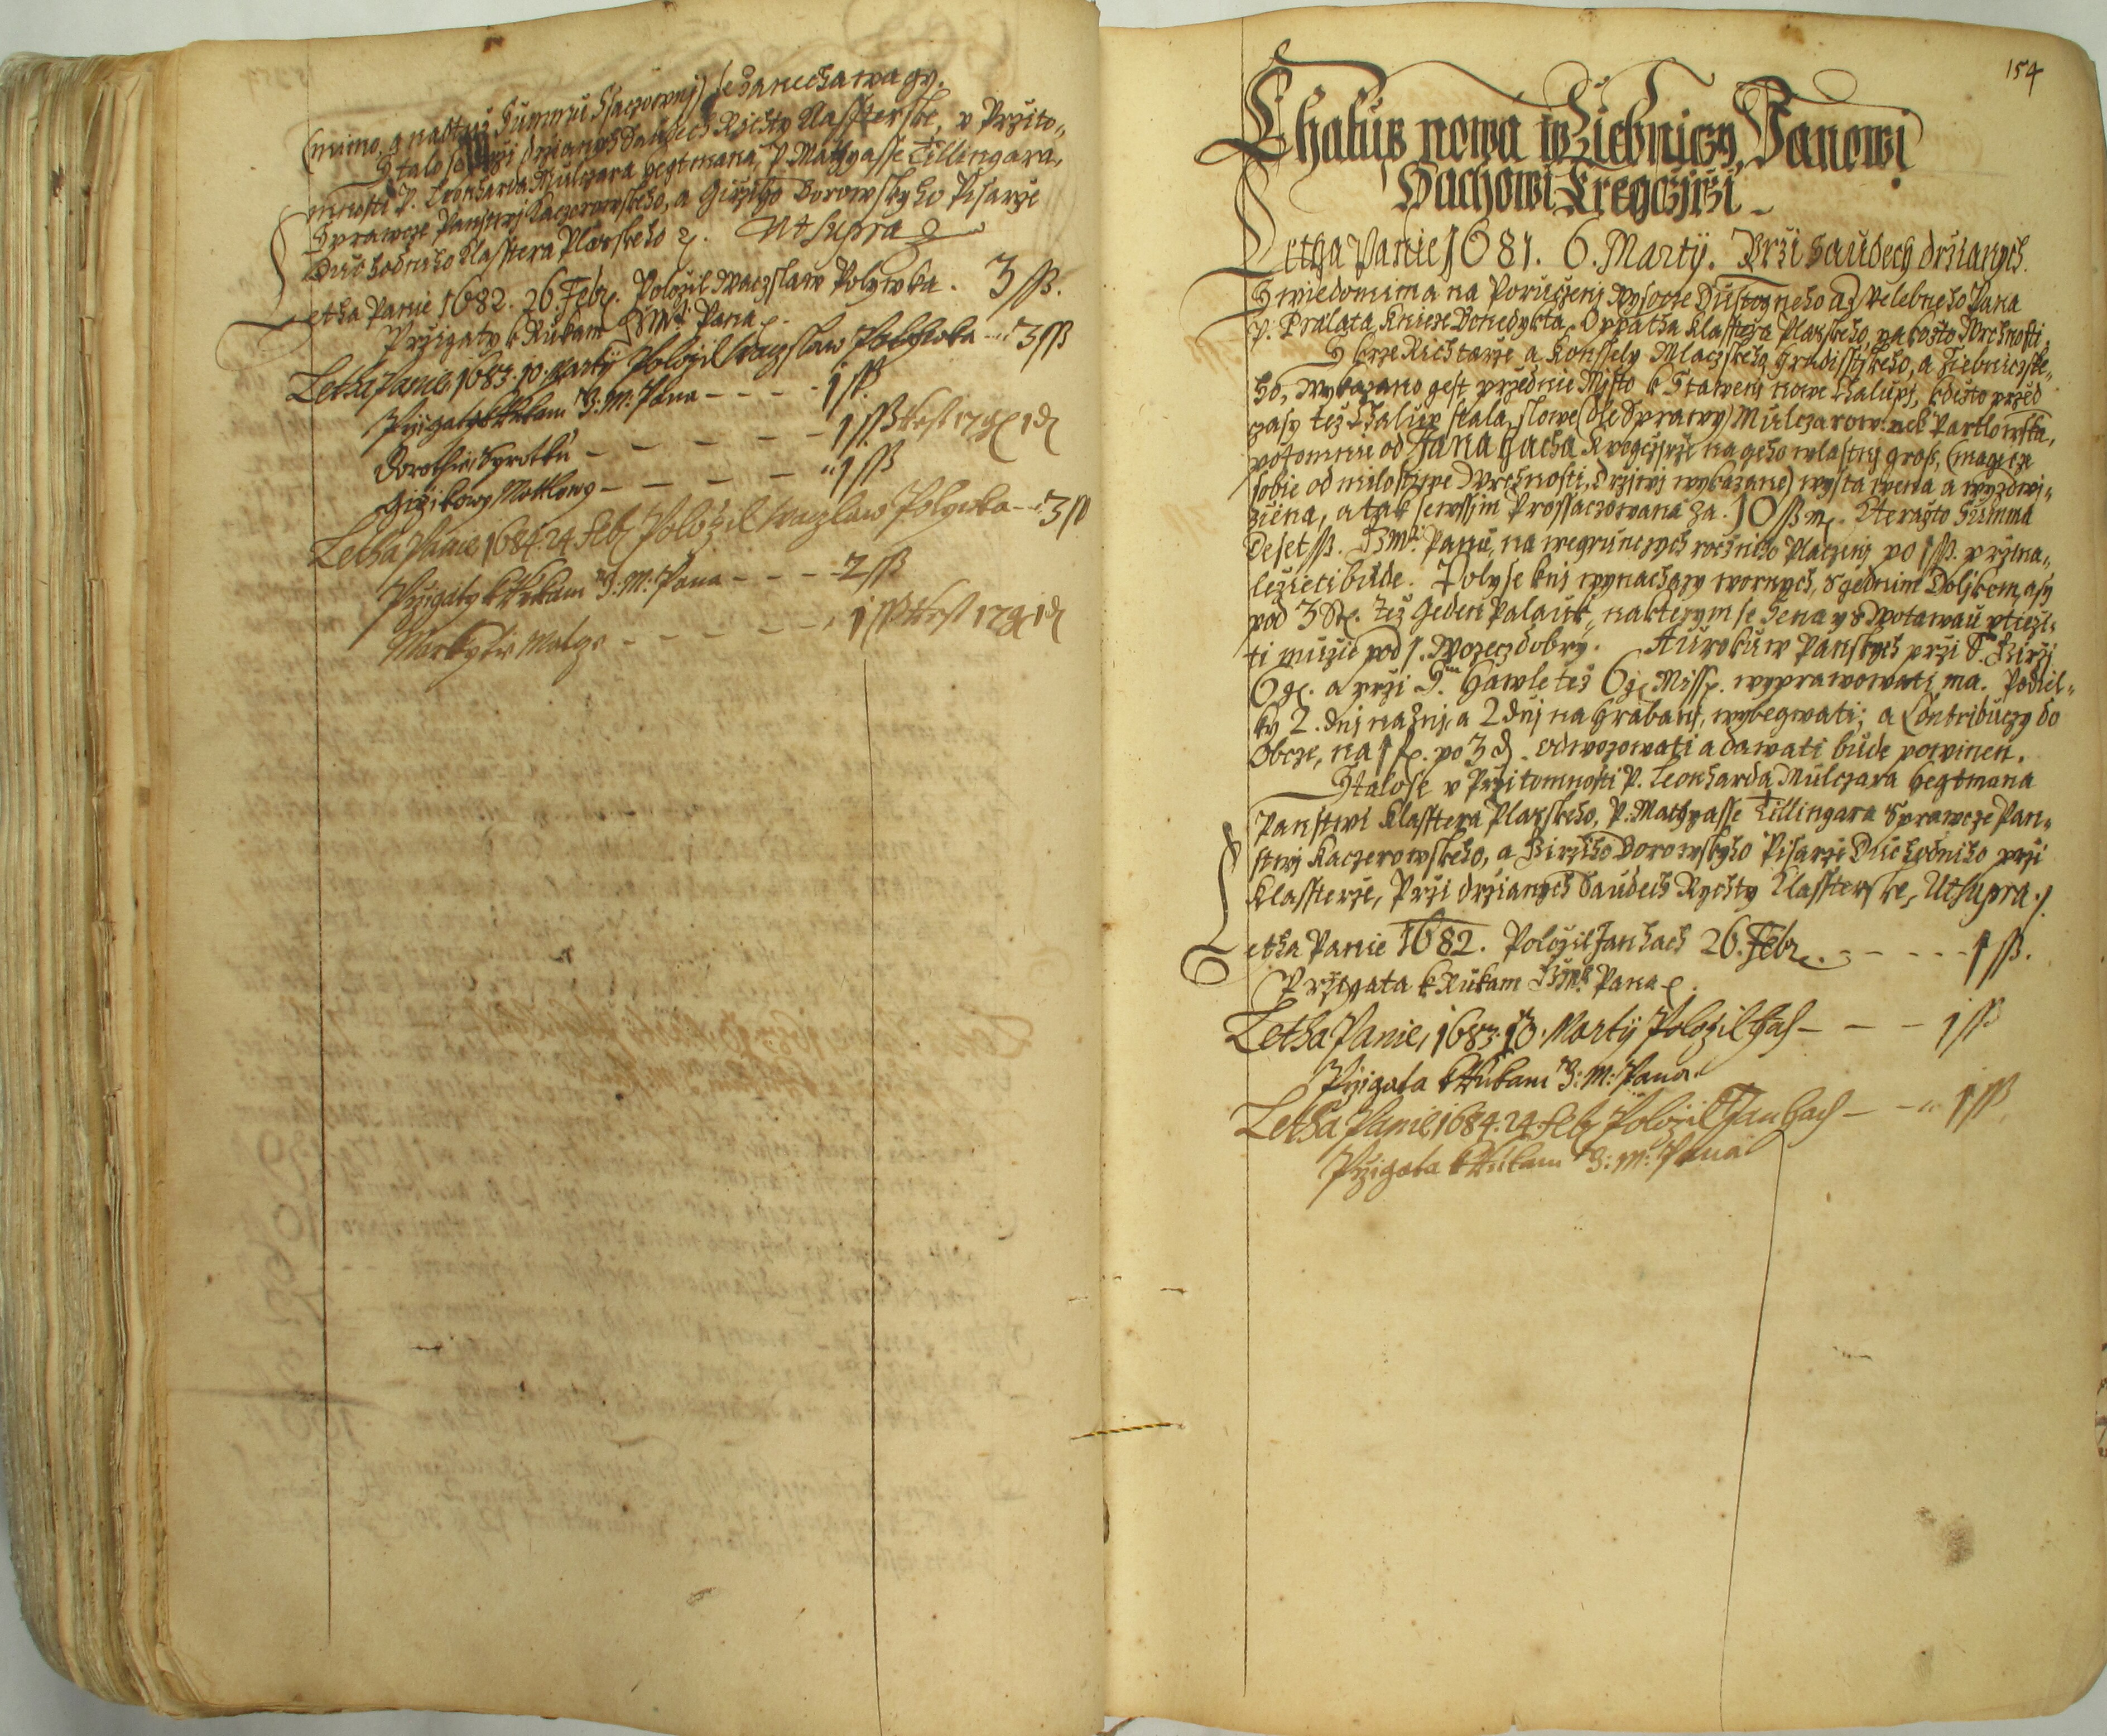 (mimo gnaktuž Summu Ssaczowný) se Zanechawagy.
Stalo se przi držianych Saudech Rychty Klassterske, v Przito„
mnosti P. Leonharda Mulczara Hegtmana, P. Mathyasse Tillingara,
Sprawcze Panstwj Kaczerowskeho, a Giržiho Borowskyho Pisarže
Duchodniho Klasstera Plasskeho. Ut Supra
Letha Panie 1682. 26. Febr. Položil Waczslaw Polywka. 3 ß.
Pržigaty k Rukam J. Mti Pana.
Letha Panie, 1683. 10. Martÿ Položil Waczslaw Polywka — 3 ß
Pržigata k Rukam J: M: Pana - - - - 1 ß.
Dorothie, Syrotku - - - - - 1 ß
Giržikowy - - - - - 1 ß
Letha Panie 1684. 24. Feb. Položil Waczlaw Polywka - - 3 ß
Pržigaty k Rukam J: M: Pana - - - - 2 ß
- - - - - - 1 ß
154
Chalupa nowa w Žiebniczy, Janowi
Hachowi Kregczjržj
Letha Panie 1681. 6. Martÿ. Pržj Saudech držianych.
S wiedomim a na Poruczenj Wysocze Dustogneho a Welebneho Pana
P. Prælata Knieze Benedykta, Oppatha Klasstera Plasskeho, yakožto Wrchnosti,
Skrze Richtarže a Konssely Mlaczskeho, Hradisstskeho, a Žiebniczske„
ho, Wykazano gest pržednie Misto k Stawenj nowe Chalupj, kdežto pržed
časy též Chalupa stala, slowe (dle Sprawy) Mulczarow neb Partlowska,
potomnie od Jana Hacha Kregczjrže na geho wlastnj groß, (magicze
sobie od milostiwe Wrchnosti, Držjwj wykazane) wystawena a wyzdwi„
žiena, a tak se wssjm Prossaczowana za 10 ß m. Kteražto Summa
Deset ß. J Mti Panu, na wegrunczych ročniho Placzenj po 1 ß. pržina„
ležieti bude. Poly se knj wynachazy wornych, s gednim Dolikem, asy
pod 3 Str. též geden Palauk, na kterym se Sena y s Wotawau vtieži„
ti muže pod 1. Wozecz dobry. A Urokuw Panskych przi S. Giržj
6 g. a przi S. Hawle též 6 g. Miss. wyprawowati ma. Podiel„
ky 2. dnj na žnj, a 2 dnj na hrabanj, wybegwati; a Contribuczy do
Obcze, na 1 f. po 3 d. odwozowati a dawati bude powinen.
Stalo se v Pržitomnosti P. Leonharda Mulczara Hegtmana
Panstwi Klasstera Plasskeho, P. Mathyasse Tillingara Sprawcze Pan„
stwj Kaczerowskeho, a Giržiho Borowskyho Pisarže Duchodniho prži
Klassterže, Prži držianych Saudech Rychty Klassterske, Ut Supra.
Letha Panie 1682. Položil Jan Hach 26. Febr. - - - - 1 ß.
Pržigata k Rukam J Mti Pana.
Letha Panie, 1683. 10. Martÿ Položil Hach - - - 1 ß
Pržigata k Rukam J: M: Pana.
Letha Panie 1684. 24. Feb. Položil Jan Hach - - 1 ß
Pržigata k Rukam J: M: Pana